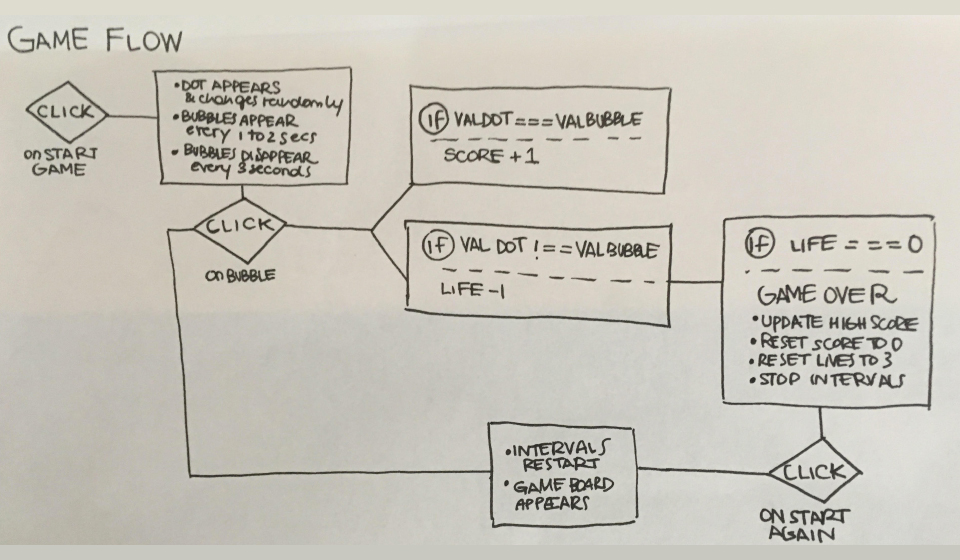 GAME FLOW
CLICK
ON START
GAME
• DOT APPEARS
& changes randomly
• BUBBLES APPEAR
every 1 to 2 secs
• BUBBLES DISAPPEAR
every 3 seconds
CLICK
ON BUBBLE
IF VALDOT === VALBUBBLE
SCORE +1
IF VAL DOT !== VALBUBBLE
LIFE -1
IF LIFE === 0
GAME OVER
• UPDATE HIGH SCORE
• RESET SCORE TO 0
• RESET LIVES TO 3
• STOP INTERVALS
CLICK
ON START
AGAIN
• INTERVALS
RESTART
• GAME BOARD
APPEARS